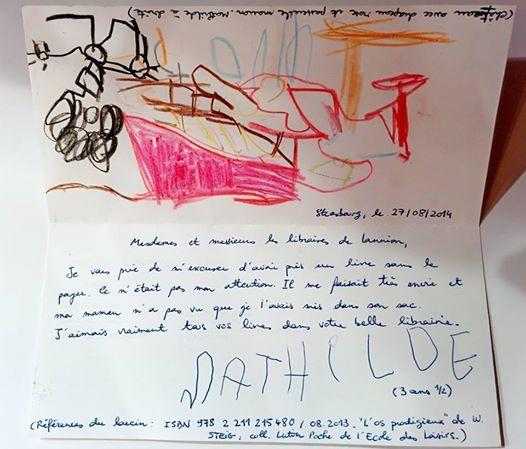 (château avec drapeau rose et passerelle marron. Mathilde à droite)
Strasbourg, le 27/08/2014
Mesdames et messieurs les libraires de Lannion,
Je vous prie de m'excuser d'avoir pris un livre sans le
payer. Ce n'était pas mon attention. Il me faisait très envie et
ma maman n'a pas vu que je l'avais mis dans son sac.
J'aimais vraiment tous vos livres dans votre belle librairie.
MATHILDE
(3 ans 1/2)
(Références du larcin: ISBN 978 2 211 215480 / 08.2013. "L'os prodigieux" de W.
STEIG, coll. Lutin Poche de l'Ecole des Loisirs.)